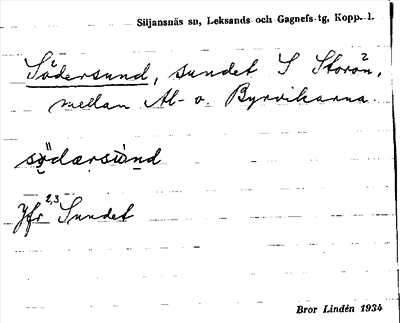 Siljansnäs sn, Leksands och Gagnefs tg, Kopp. l.
Södersund, sundet S Storön,
mellan Al- o. Byrvikarna.
södærsùnd
Jfr 2,3 Sundet
Bror Lindén 1934